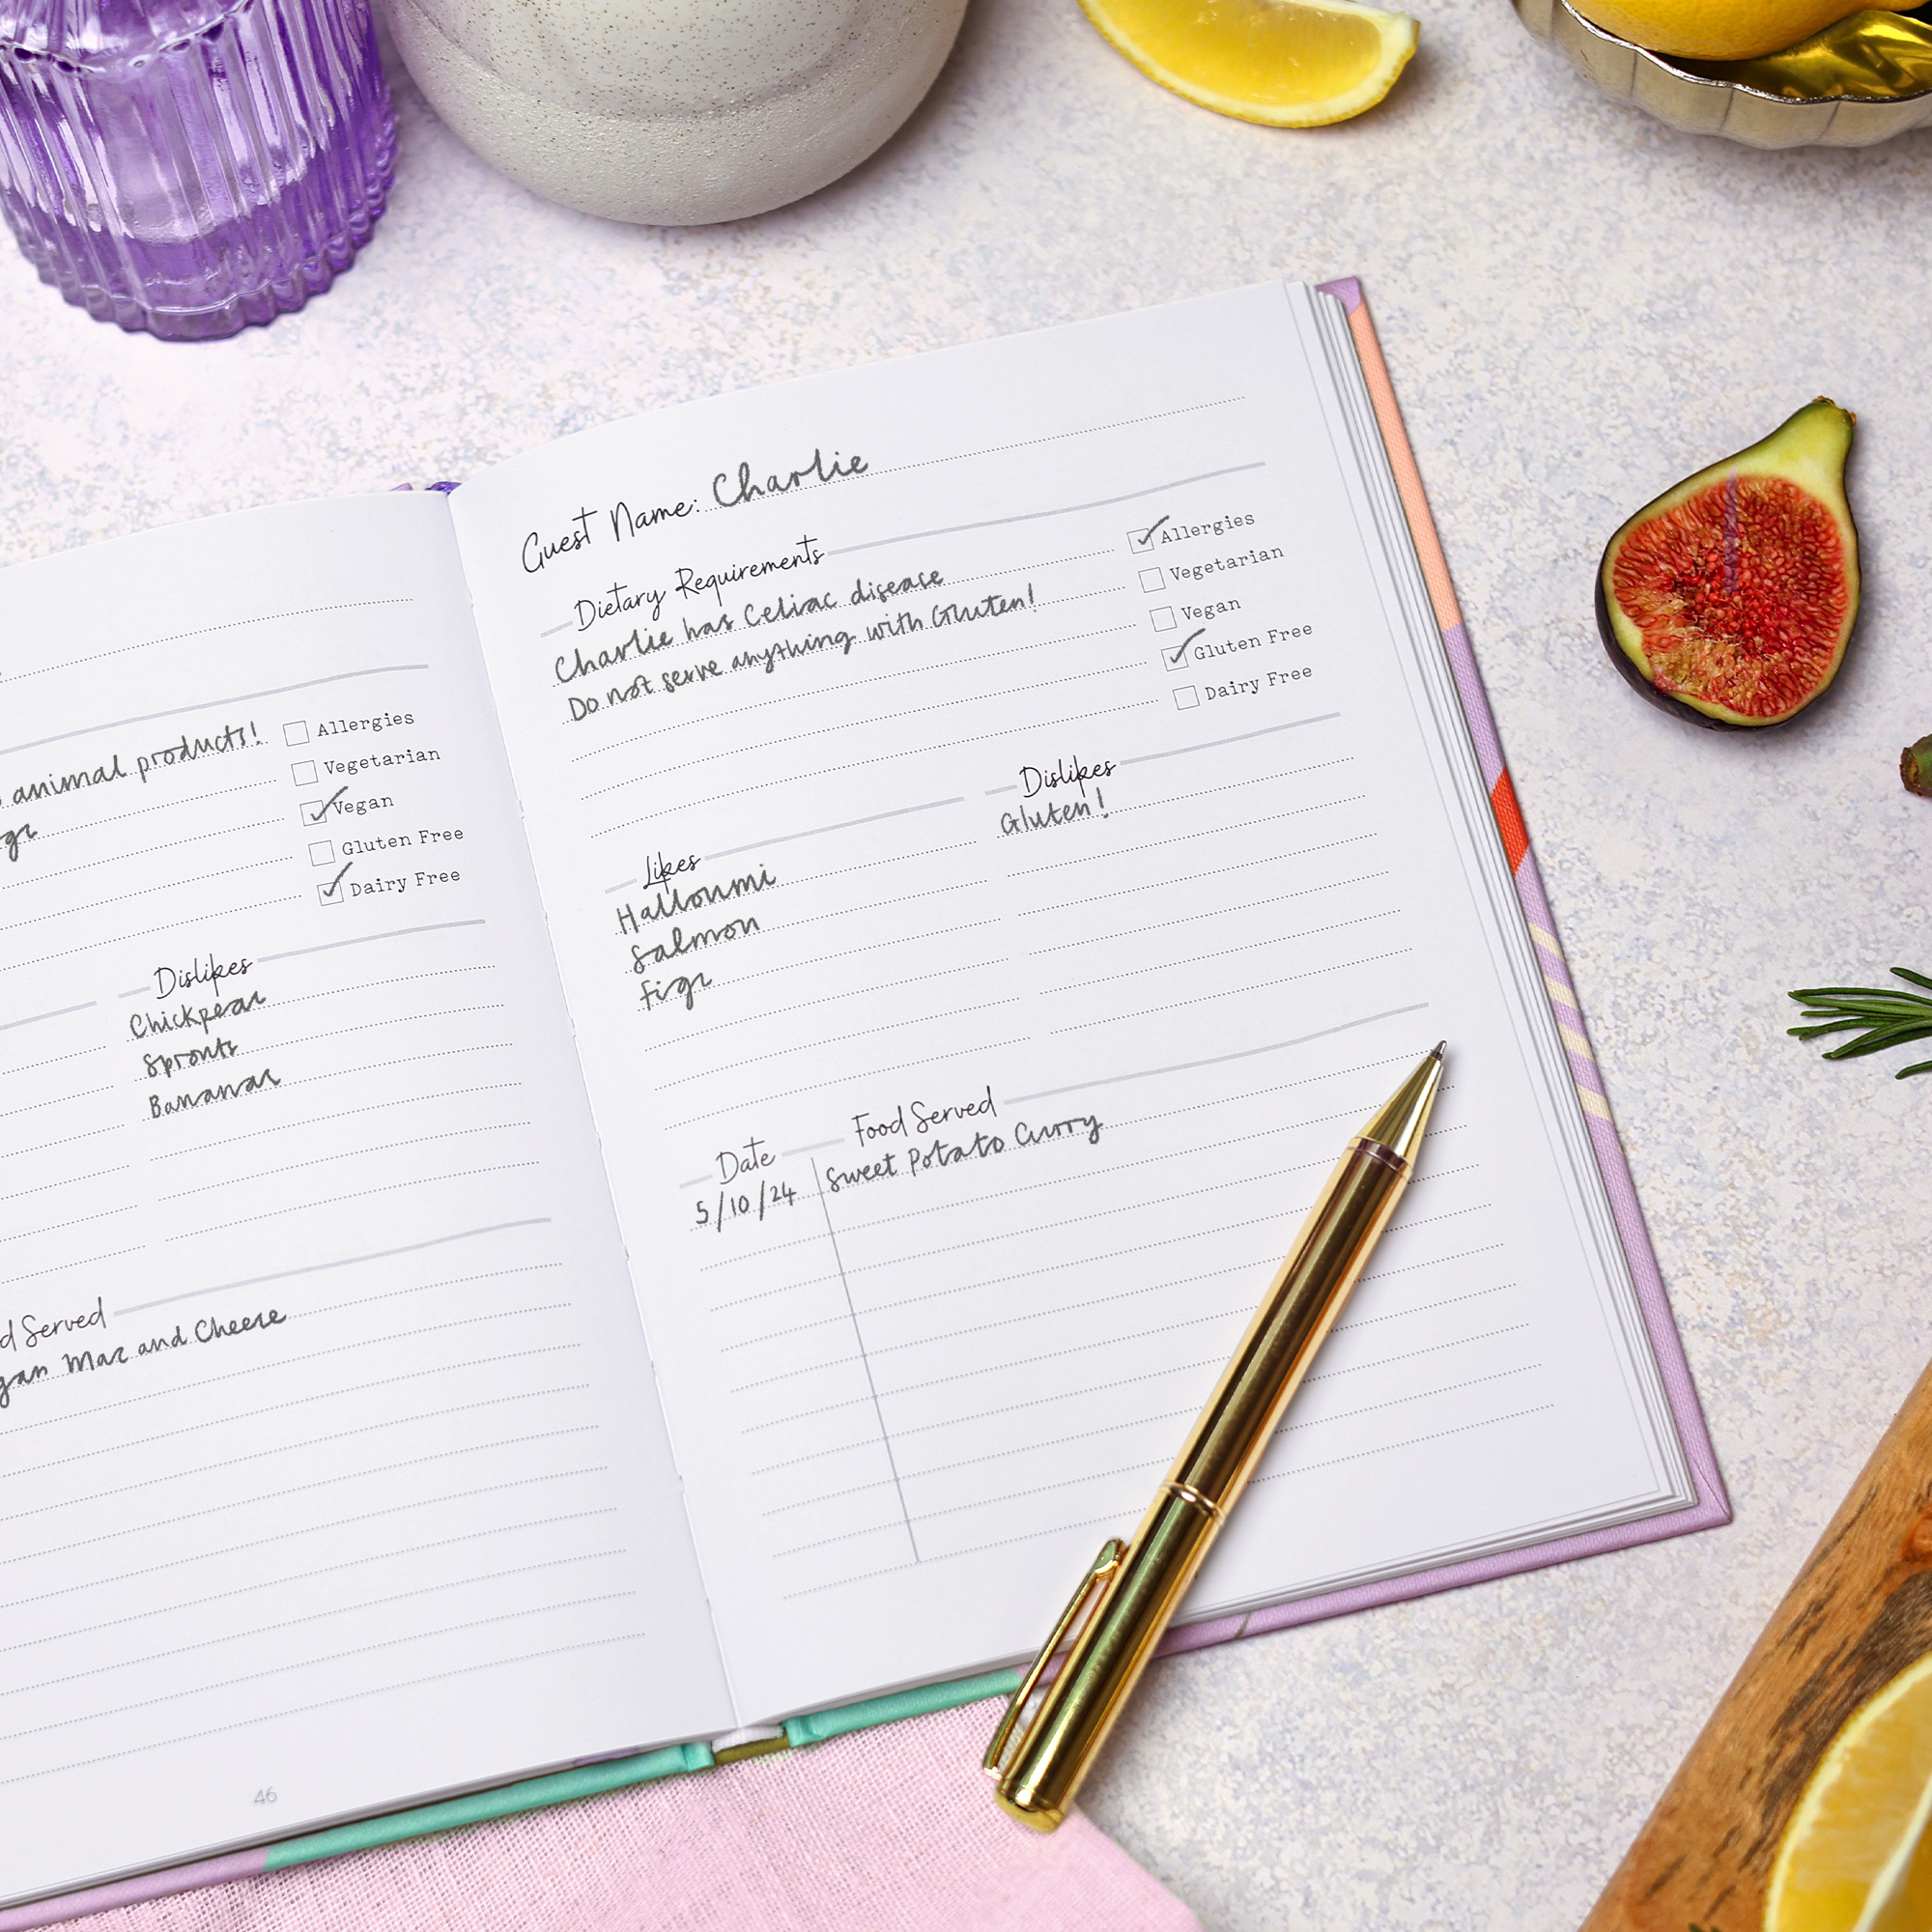 animal products!
Allergies
Vegetarian
Vegan
Gluten Free
Dairy Free
Dislikes
Chickpeas
Sprouts
Bananas
Served
Mac and Cheese
46
Guest Name: Charlie
Dietary Requirements
Charlie has Celiac disease
Do not serve anything with Gluten!
Allergies
Vegetarian
Vegan
Gluten Free
Dairy Free
Likes
Halloumi
Salmon
figs
Dislikes
Gluten!
Date
Food Served
5/10/24
Sweet Potato Curry